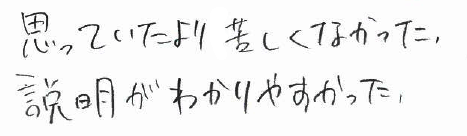 思っていたより苦しくなかった、
説明がわかりやすかった、